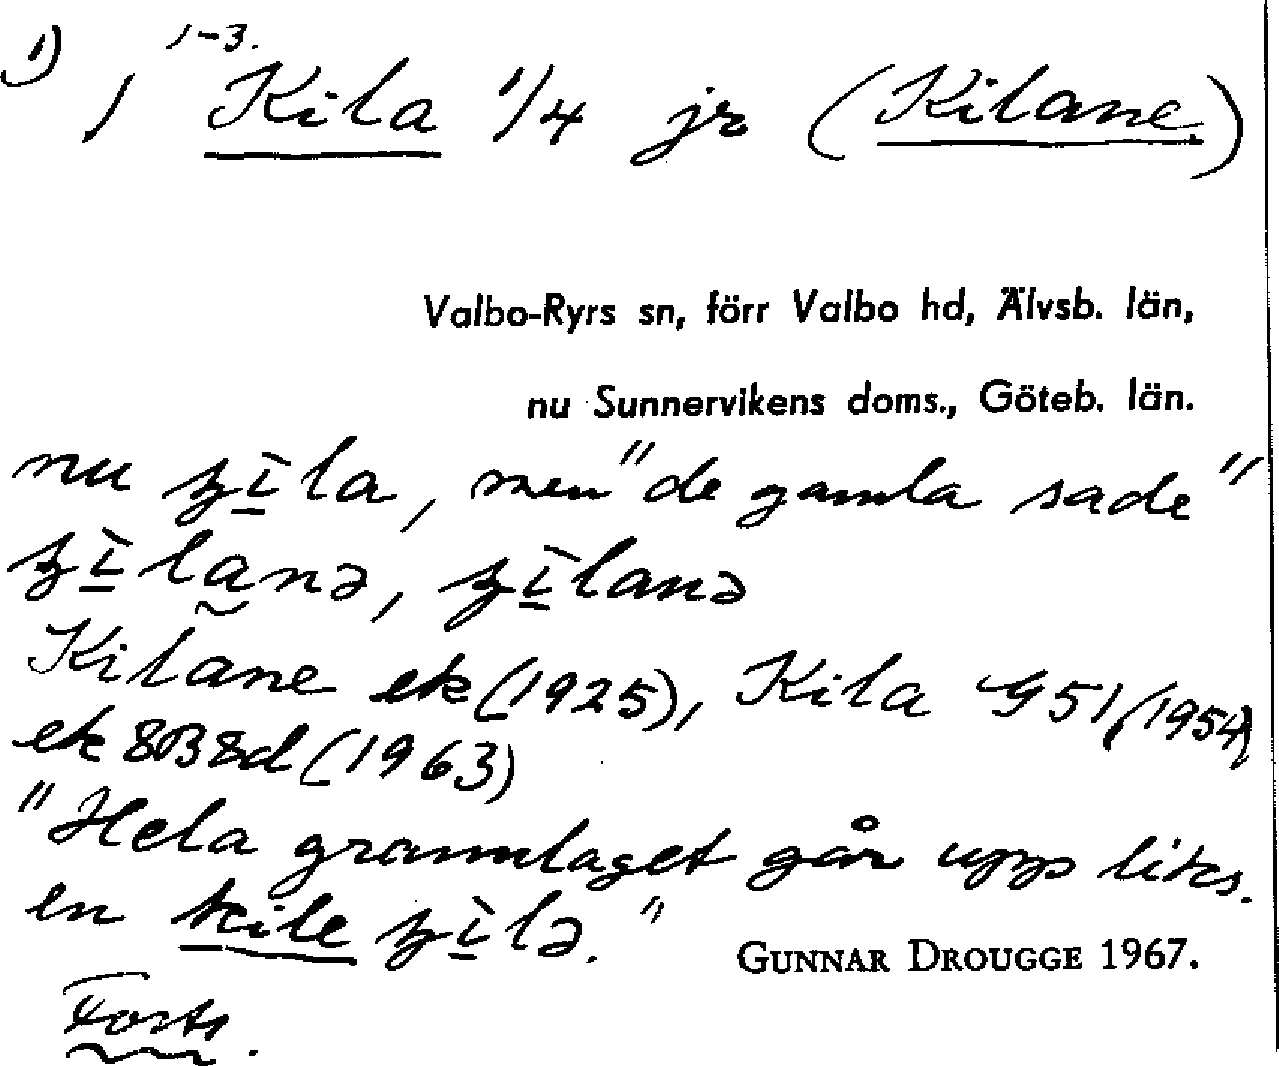 1) 1 1-3. Kila 1/4 jr (Kilane)
Valbo-Ryrs sn, förr Valbo hd, Älvsb. län,
nu Sunnervikens doms., Göteb. län.
nu ʒìla, men "de gamla sade"
ʒìlanə, ʒìlanə
Kilane ek (1925), Kila G51 (1954)
ek 8B8d (1963)
"Hela grannlaget går upp liks.
en kile ʒìlə."
GUNNAR DROUGGE 1967.
Forts.